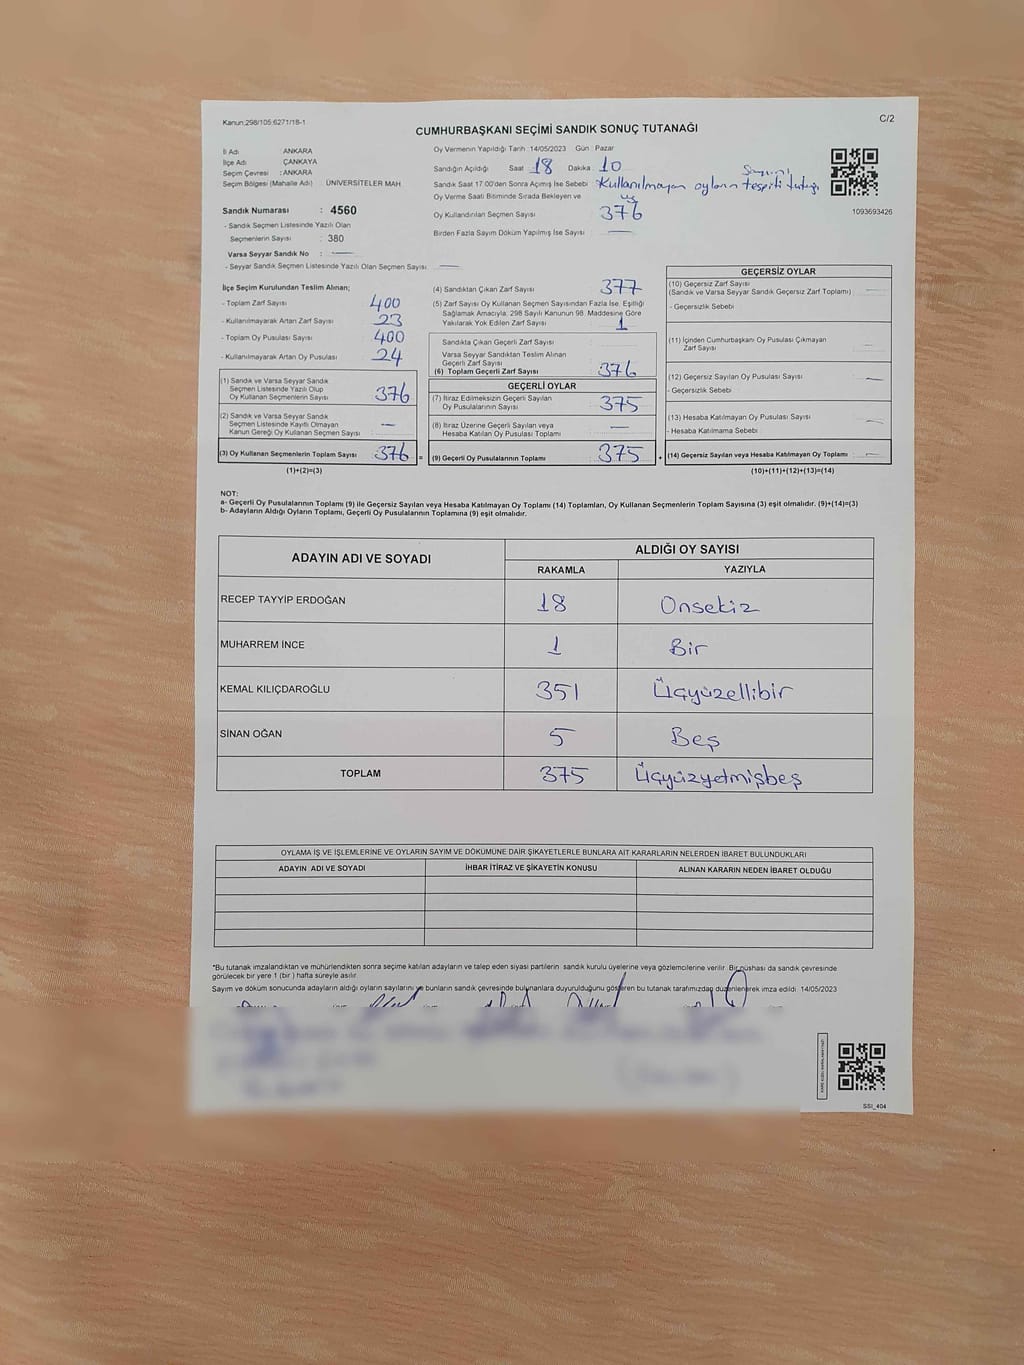 Kanun;298/105;6271/18-1
C/2
CUMHURBAŞKANI SEÇİMİ SANDIK SONUÇ TUTANAĞI
İli Adı : ANKARA
İlçe Adı : ÇANKAYA
Seçim Çevresi : ANKARA
Seçim Bölgesi (Mahalle Adı) : ÜNİVERSİTELER MAH.
Oy Vermenin Yapıldığı Tarih :14/05/2023 Gün : Pazar
Sandığın Açıldığı Saat 18 Dakika : 10
Sandık Saat 17.00'den Sonra Açılmış İse Sebebi : Kullanılmayan oyların tespiti tutuğu
Oy Verme Saati Bitiminde Sırada Bekleyen ve
Oy Kullandırılan Seçmen Sayısı 376
Birden Fazla Sayım Döküm Yapılmış İse Sayısı : —
1093693426
Sandık Numarası : 4560
- Sandık Seçmen Listesinde Yazılı Olan
Seçmenlerin Sayısı : 380
Varsa Seyyar Sandık No : —
- Seyyar Sandık Seçmen Listesinde Yazılı Olan Seçmen Sayısı: —
İlçe Seçim Kurulundan Teslim Alınan;
- Toplam Zarf Sayısı 400
- Kullanılmayarak Artan Zarf Sayısı 23
- Toplam Oy Pusulası Sayısı 400
- Kullanılmayarak Artan Oy Pusulası 24
(1) Sandık ve Varsa Seyyar Sandık
Seçmen Listesinde Yazılı Olup
Oy Kullanan Seçmenlerin Sayısı 376
(2) Sandık ve Varsa Seyyar Sandık
Seçmen Listesinde Kayıtlı Olmayan
Kanun Gereği Oy Kullanan Seçmen Sayısı —
(3) Oy Kullanan Seçmenlerin Toplam Sayısı 376 =
(1)+(2)=(3)
(4) Sandıktan Çıkan Zarf Sayısı 377
(5) Zarf Sayısı Oy Kullanan Seçmen Sayısından Fazla İse, Eşitliği
Sağlamak Amacıyla; 298 Sayılı Kanunun 98. Maddesine Göre
Yakılarak Yok Edilen Zarf Sayısı 1
Sandıkta Çıkan Geçerli Zarf Sayısı
Varsa Seyyar Sandıktan Teslim Alınan
Geçerli Zarf Sayısı
(6) Toplam Geçerli Zarf Sayısı 376
GEÇERLİ OYLAR
(7) İtiraz Edilmeksizin Geçerli Sayılan
Oy Pusulalarının Sayısı 375
(8) İtiraz Üzerine Geçerli Sayılan veya
Hesaba Katılan Oy Pusulası Toplamı —
(9) Geçerli Oy Pusulalarının Toplamı 375 +
GEÇERSİZ OYLAR
(10) Geçersiz Zarf Sayısı
(Sandık ve Varsa Seyyar Sandık Geçersiz Zarf Toplamı) —
- Geçersizlik Sebebi :
(11) İçinden Cumhurbaşkanı Oy Pusulası Çıkmayan
Zarf Sayısı —
(12) Geçersiz Sayılan Oy Pusulası Sayısı —
- Geçersizlik Sebebi :
(13) Hesaba Katılmayan Oy Pusulası Sayısı —
- Hesaba Katılmama Sebebi :
(14) Geçersiz Sayılan veya Hesaba Katılmayan Oy Toplamı —
(10)+(11)+(12)+(13)=(14)
NOT:
a- Geçerli Oy Pusulalarının Toplamı (9) ile Geçersiz Sayılan veya Hesaba Katılmayan Oy Toplamı (14) Toplamları, Oy Kullanan Seçmenlerin Toplam Sayısına (3) eşit olmalıdır. (9)+(14)=(3)
b- Adayların Aldığı Oyların Toplamı, Geçerli Oy Pusulalarının Toplamına (9) eşit olmalıdır.
ADAYIN ADI VE SOYADI ALDIĞI OY SAYISI
RAKAMLA YAZIYLA
RECEP TAYYİP ERDOĞAN 18 Onsekiz
MUHARREM İNCE 1 Bir
KEMAL KILIÇDAROĞLU 351 Üçyüzellibir
SİNAN OĞAN 5 Beş
TOPLAM 375 Üçyüzyetmişbeş
OYLAMA İŞ VE İŞLEMLERİNE VE OYLARIN SAYIM VE DÖKÜMÜNE DAİR ŞİKAYETLERLE BUNLARA AİT KARARLARIN NELERDEN İBARET BULUNDUKLARI
ADAYIN ADI VE SOYADI İHBAR İTİRAZ VE ŞİKAYETİN KONUSU ALINAN KARARIN NEDEN İBARET OLDUĞU
*Bu tutanak imzalandıktan ve mühürlendikten sonra seçime katılan adayların ve talep eden siyasi partilerin sandık kurulu üyelerine veya gözlemcilerine verilir. Bir nüshası da sandık çevresinde
görülecek bir yere 1 (bir ) hafta süreyle asılır.
Sayım ve döküm sonucunda adayların aldığı oyların sayılarını ve bunların sandık çevresinde bulunanlara duyurulduğunu gösteren bu tutanak tarafımızdan düzenlenerek imza edildi. 14/05/2023
SSI_404